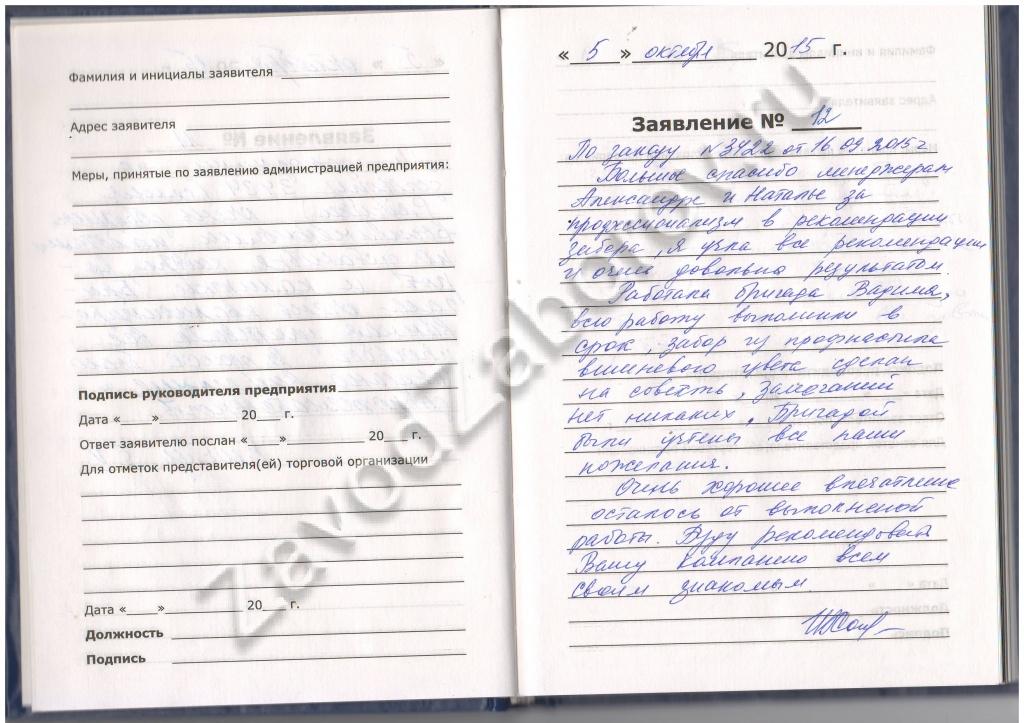 Фамилия и инициалы заявителя
Адрес заявителя
Меры, принятые по заявлению администрацией предприятия:
Подпись руководителя предприятия
Дата «____»____________ 20___ г.
Ответ заявителю послан «____»____________ 20___ г.
Для отметок представителя(ей) торговой организации
Дата «____»____________ 20___ г.
Должность
Подпись
« 5 » октября 2015 г.
Заявление № 12
По заказу №3422 от 16.09.2015г
Большое спасибо менеджерам
Александре и Наталье за
профессионализм в рекомендации
забора, я учла все рекомендации
и очень довольна результатом.
Работала бригада Вадима,
всю работу выполнили в
срок, забор из профнастила
вишневого цвета сделан
на совесть, замечаний
нет никаких. Бригадой
были учтены все наши
пожелания.
Очень хорошее впечатление
осталось от выполненой
работы. Буду рекомендовать
Вашу компанию всем
своим знакомым.
ZavodZaborov.ru